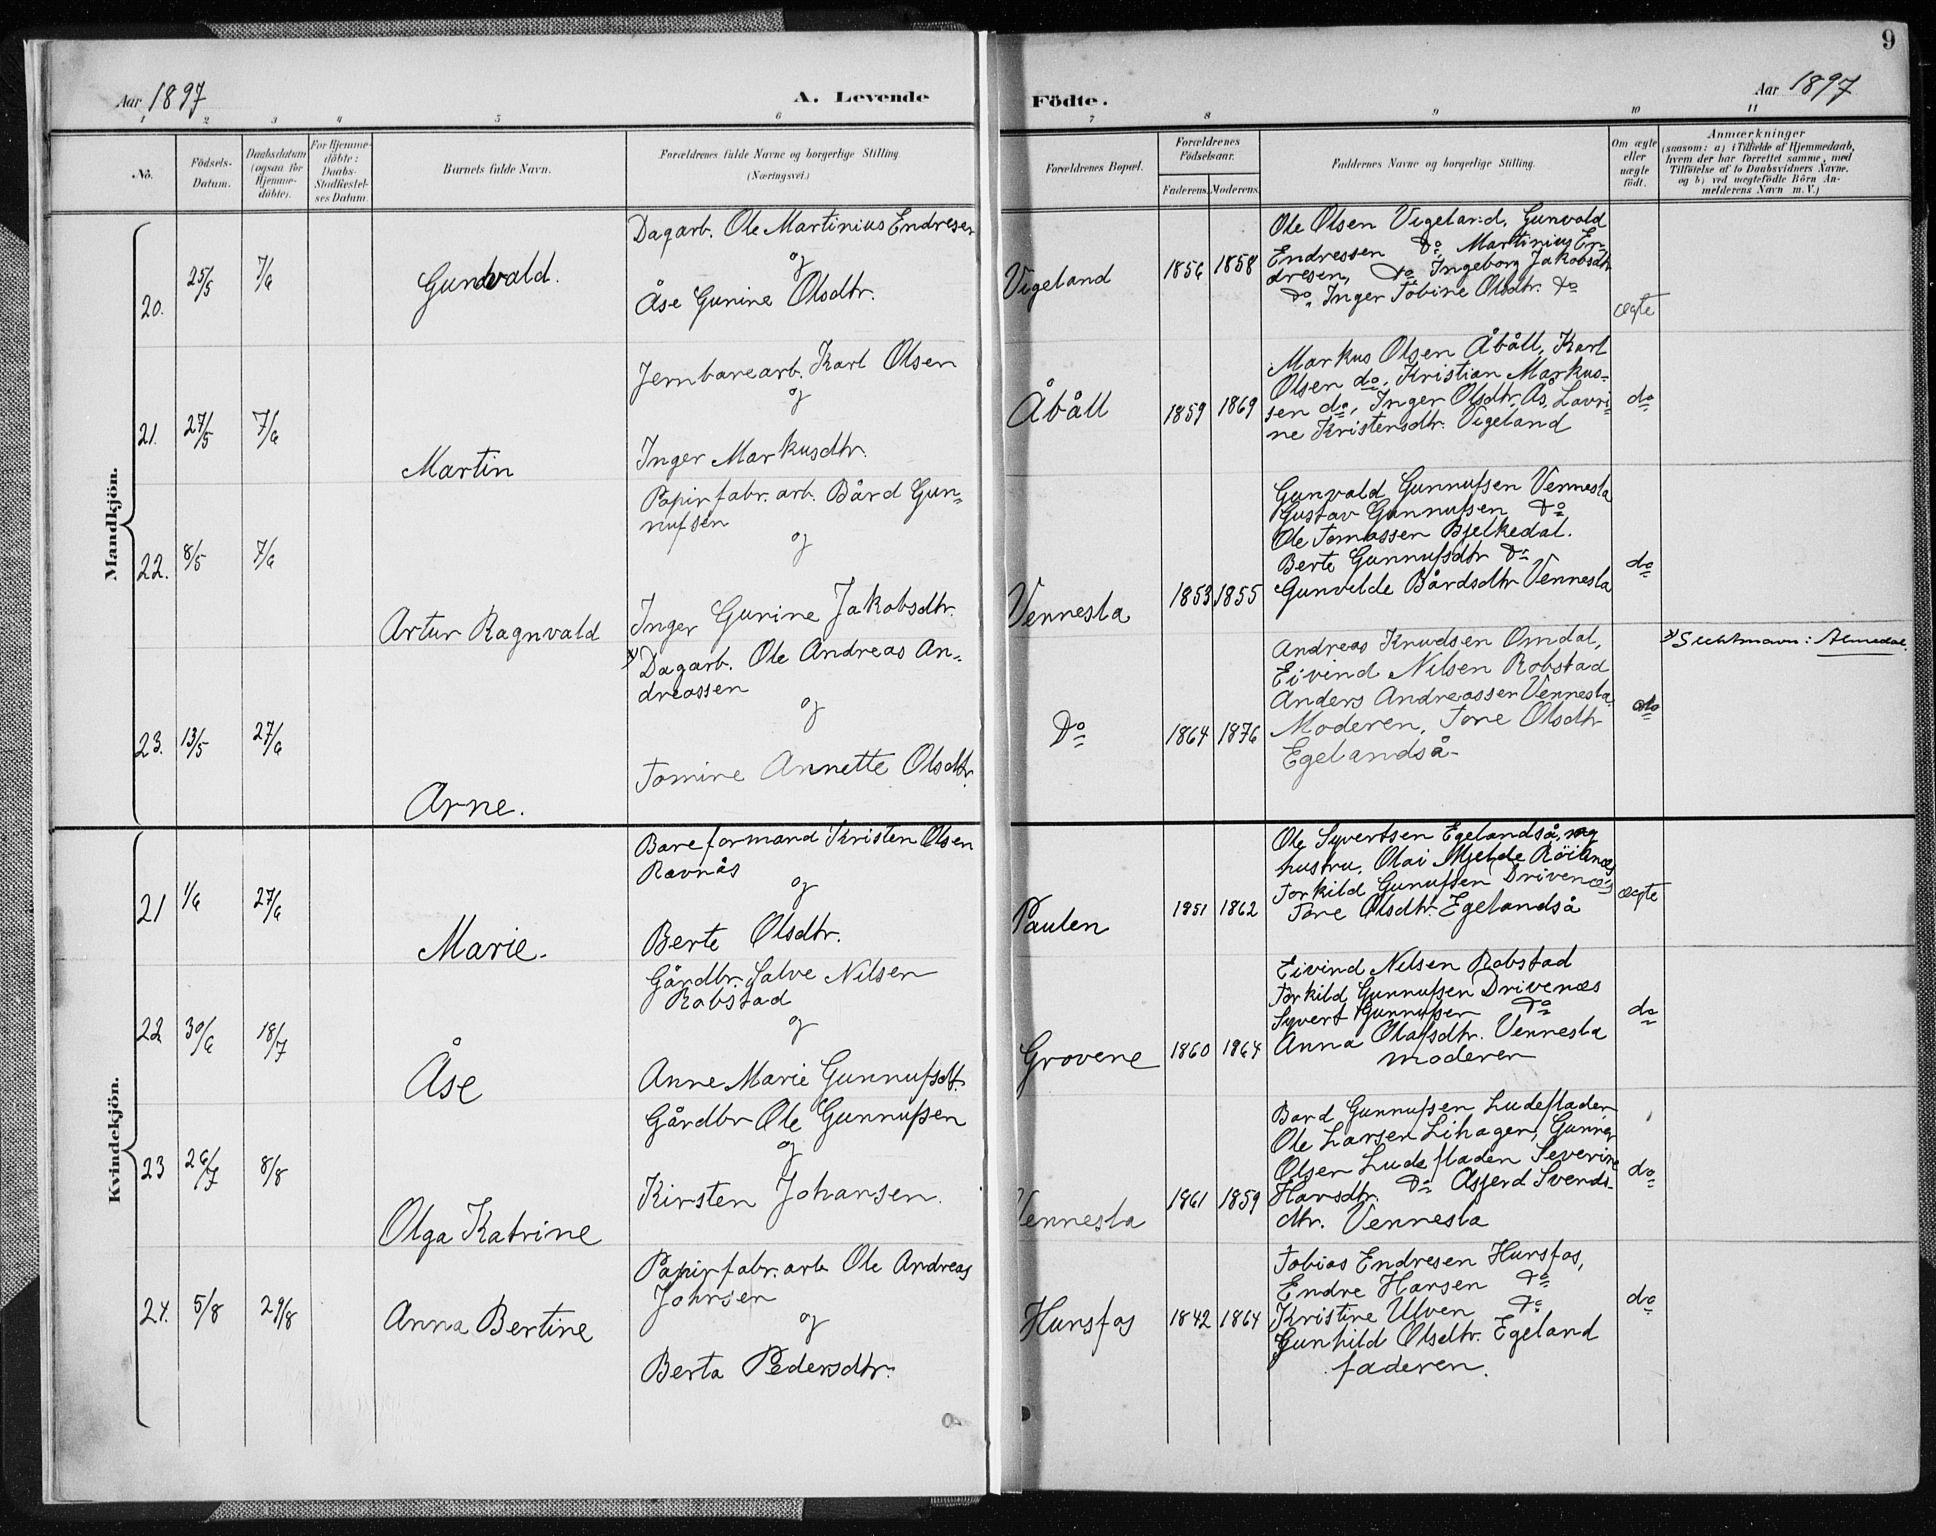 9
Aar 1897
A. Levende
Födte.
Aar 1897
1 2 3 4 5 6 7 8 9 10 11
No.
Födsels-
Datum.
Daabsdatum
(ogsaa för
Hjemme-
döbte).
For Hjemme-
döbte:
Daabs-
Stadfæstel-
ses Datum.
Barnets fulde Navn.
Forældrenes fulde Navne og borgerlige Stilling
(Næringsvei.)
Forældrenes Bopæl.
Forældrenes
Födselsaar.
Faderens. Moderens.
Faddernes Navne og borgerlige Stilling.
Om ægte
eller
uægte
födt.
Anmærkninger
(saasom: a) i Tilfælde af Hjemmedaab,
hvem der har forrettet samme, med
Tilföielse af to Daabsvidners Navne.
og b) ved uægtefödte Börn An-
melderens Navn m. V.)
Mandkjön.
20.
25/5
7/6
Gunvald.
Dagarb. Ole Martinius Endresen
og
Åse Gunine Olsdtr.
Vigeland
1856 1858
Ole Olsen Vigeland, Gunvald
Endressen Do Martinius En-
dresen, Do Ingeborg Jakobsdtr
Do, Inger Tobine Olsdtr. Do
ægte
21.
27/5
7/6
Martin
Jernbanearb. Karl Olsen
og
Inger Markusdtr.
Åbåll
1859 1869
Markus Olsen Åbåll, Karl
Olsen do, Kristian Markus-
sen do, Inger Olsdtr. Ås, Lavri-
ne Kristensdtr. Vigeland
do
22.
8/5
7/6
Artur Ragnvald
Papirfabr. arb. Bård Gun-
nufsen
og
Inger Gunine Jakobsdtr.
Vennesla
1853 1855
Gunvald Gunnufsen Vennesla
Gustav Gunnufsen Do
Ole Tomassen Bjelkedal.
Berte Gunnufsdtr Do
Gunvelde Bårdsdtr Vennesla
do
23.
13/5
27/6
Arne.
x) Dagarb. Ole Andreas An-
dreassen
og
Tomine Annette Olsdtr.
Do
1864 1876
Andreas Knudsen Omdal,
Eivind Nilsen Robstad
Anders Andreassen Vennesla,
Moderen, Tone Olsdtr
Egelandså
do
x) Slektsnavn: Almedal.
Kvindekjön.
21
1/6
27/6
Marie.
Baneformand Kristen Olsen
Ravnås
og
Berte Olsdtr.
Paulen
1851 1862
Ole Syvertsen Egelandså, og
hustru, Olai Mjelde Röilnes
Torkild Gunufsen Drivenæs
Tone Olsdtr. Egelandså
ægte
22
30/6
18/7
Åse
Gårdbr. Salve Nilsen
Robstad
og
Anne Marie Gunnufsdt.
Grovene
1860 1864
Eivind Nilsen Robstad
Torkild Gunnufsen Drivenæs
Syvert Gunnufsen Do
Anna Olafsdtr. Vennesla
moderen
do
23
26/7
8/8
Olga Katrine
Gårdbr Ole Gunnufsen
og
Kirsten Johansen.
Vennesla
1861 1859
Bård Gunnufsen Ludefladen
Ole Larsen Lihagen, Gunner
Olsen Ludefladen Severine
Hansdtr. Do Asjerd Svends-
dtr. Vennesla
do
24.
5/8
29/8
Anna Bertine
Papirfabr. arb Ole Andreas
Johnsen
og
Berta Pedersdtr.
Hunsfos
1842 1864
Tobias Endresen Hunsfos,
Endre Hansen Do
Kristine Ulven Do
Gunhild Olsdtr. Egeland
faderen.
do